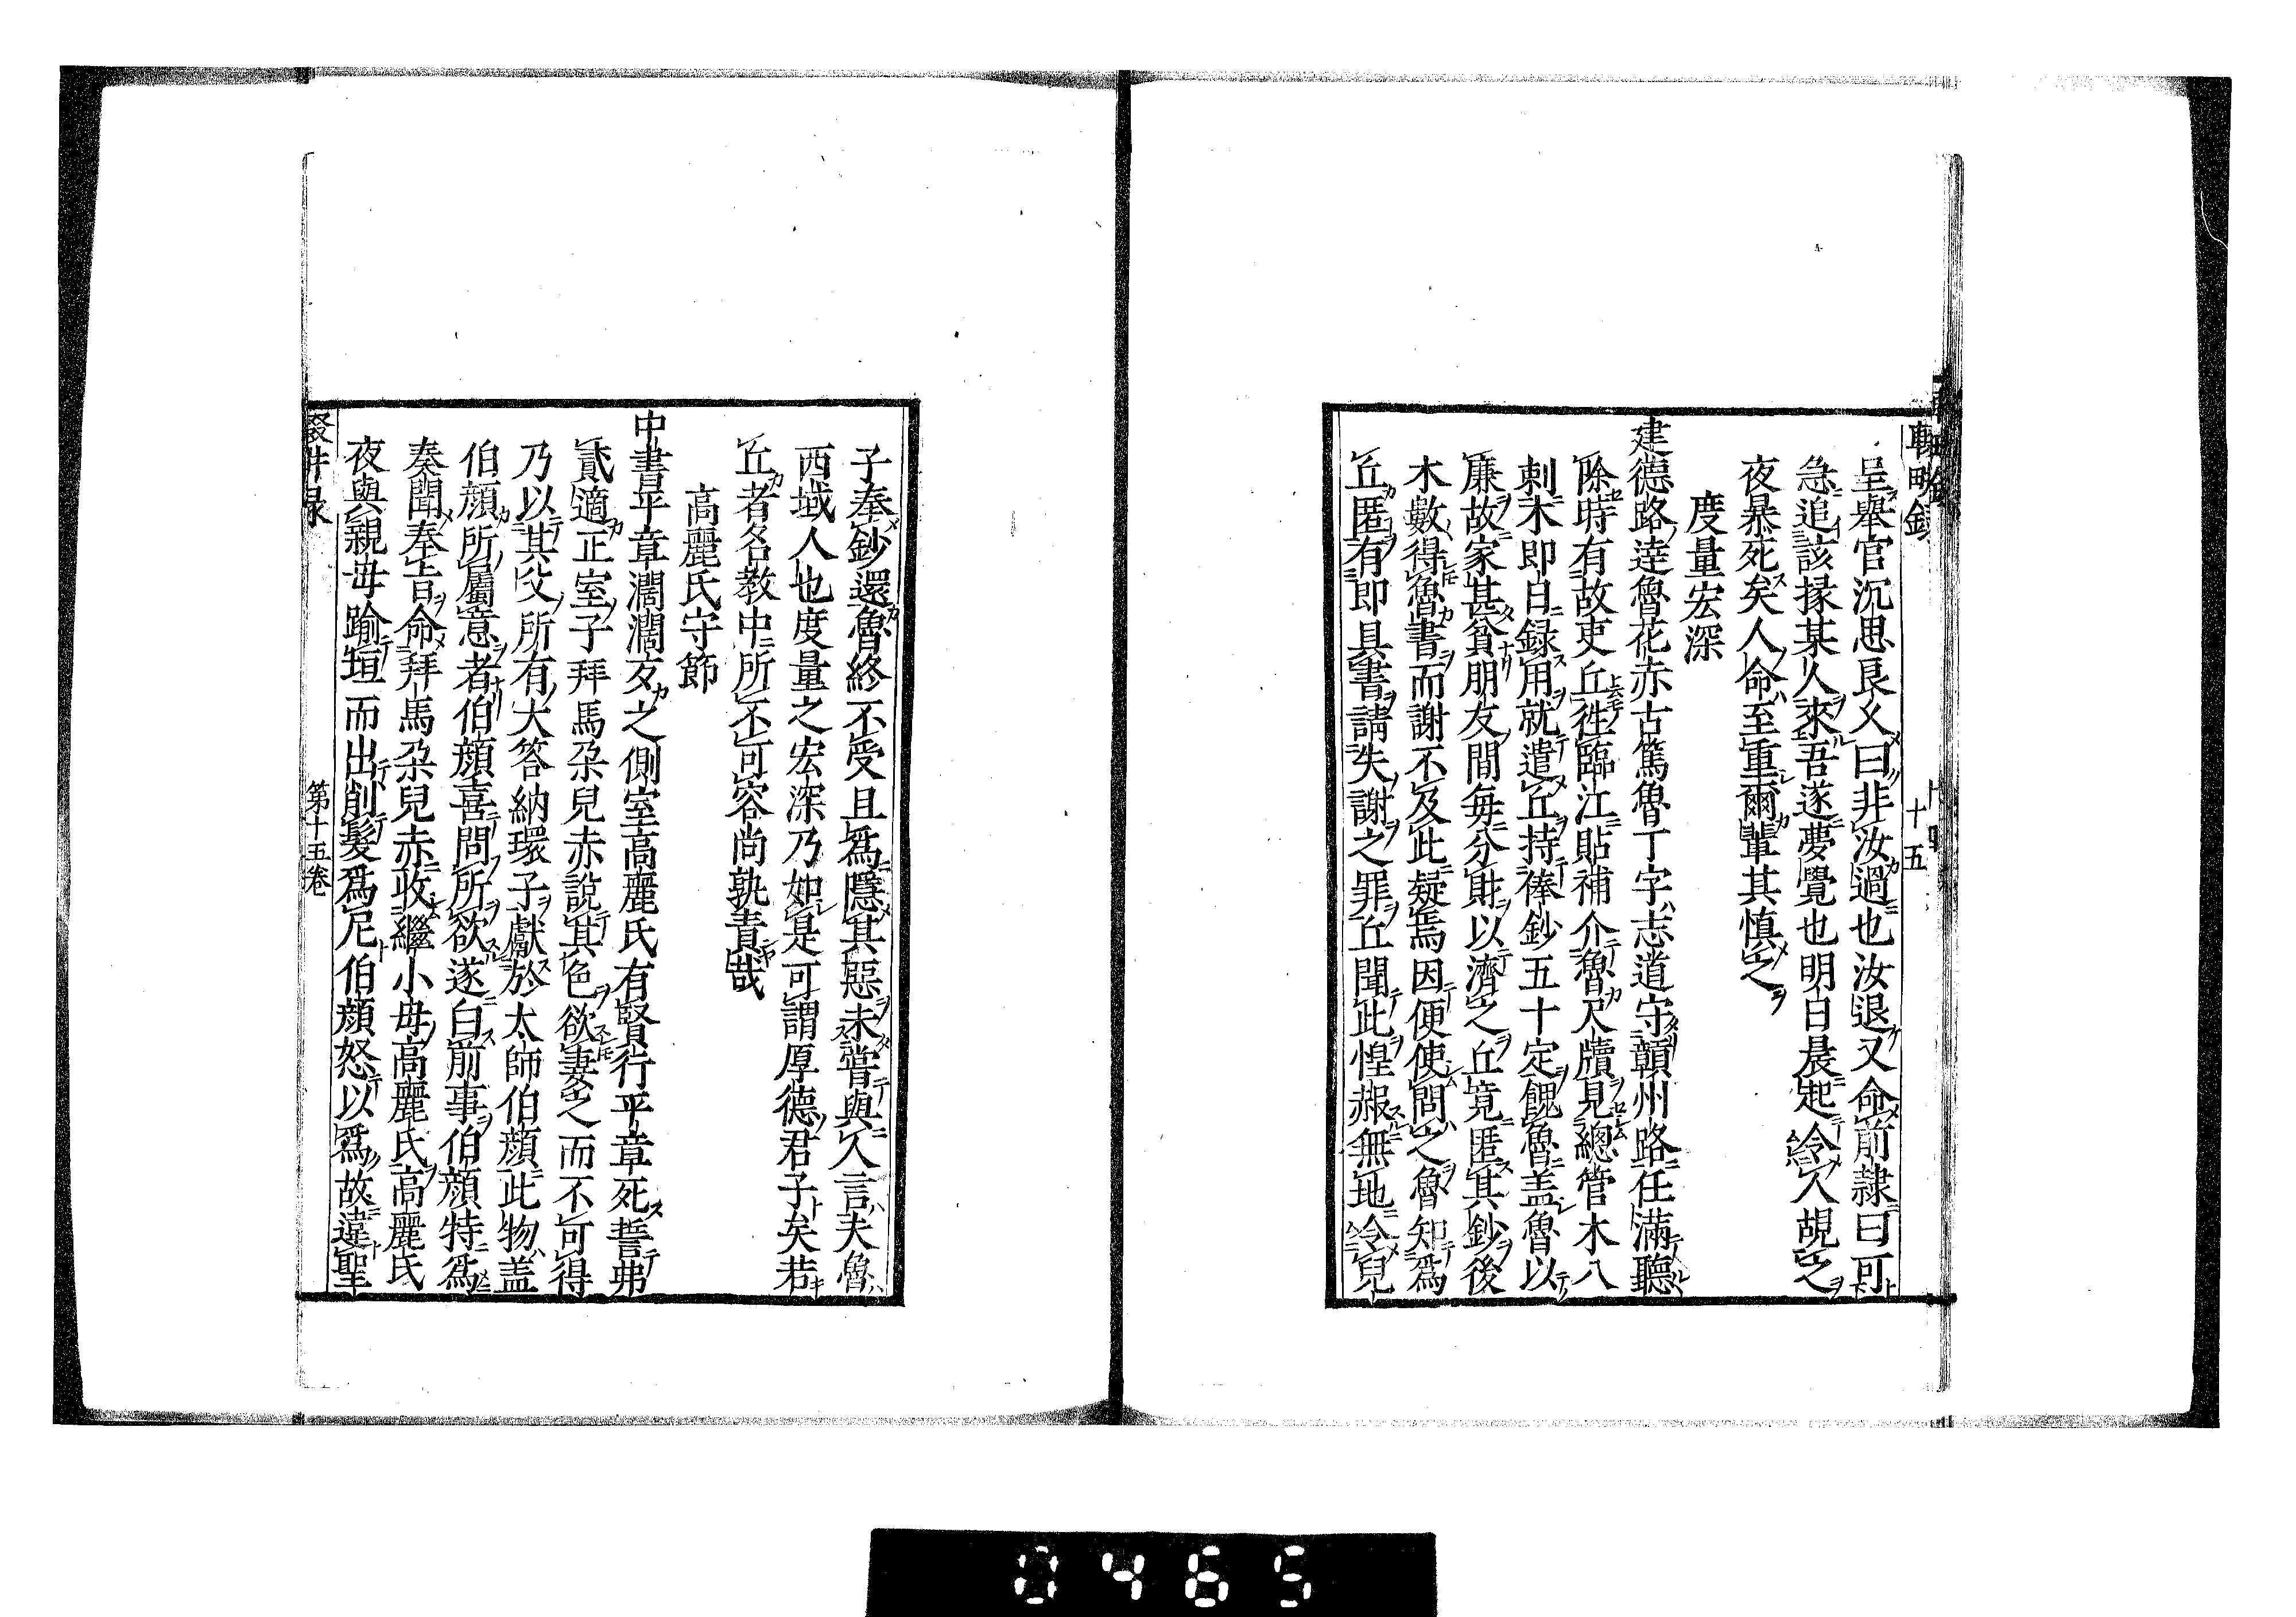 呈舉官沉思良乆曰非汝過也汝退又命前隷曰可
急追該掾某人來吾遂夢覺也明白晨起令人覘之
夜暴死矣人命至重爾輩其慎之
度量宏深
建德路達魯花赤古篤魯丁字志道守贑州路任滿聽
除時有故吏丘徃臨江貼補介魯尺牘見總管木八
刺木即白録用就遣丘持俸鈔五十定餽魯盖魯以
廉故家甚貧朋友間每分財以濟之丘竟匿其鈔後
木數得魯書而謝不及此疑焉因便使問之魯知爲
丘匿有即具書請失謝之罪丘聞此惶赧無地令兒
子奉鈔還魯終不受且爲隱其惡未嘗與人言夫魯
西域人也度量之宏深乃如是可謂厚德君子矣若
丘者名教中所不可容尚孰責哉
高麗氏守節
中書平章濶濶歹之側室高麗氏有賢行平章死誓弗
貳適正室子拜馬朶兒赤說其色欲妻之而不可得
乃以其父所有大答納環子獻於太師伯顔此物盖
伯顔所屬意者伯顔喜問所欲遂白前事伯顔特爲
奏聞奉旨命拜馬朶兒赤收繼小母高麗氏高麗氏
夜與親母踰垣而出削髮爲尼伯顔怒以爲故違聖
第十五卷
十五
0465